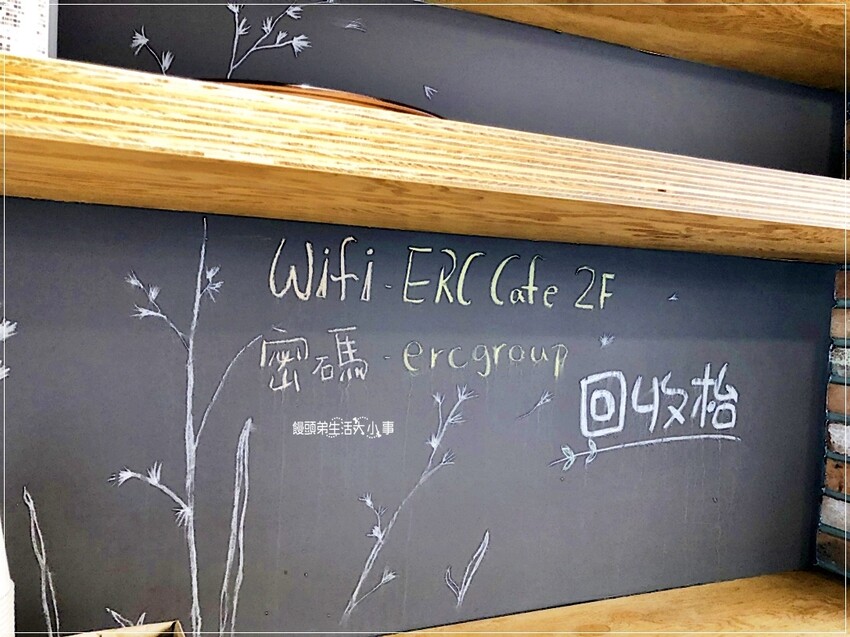 Wifi - ERC Cafe 2F
密碼 - ercgroup
饅頭弟生活大小事
回收枱